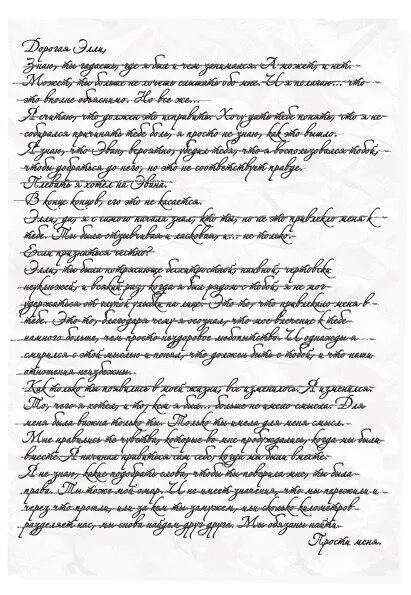 Дорогая Элли,
Знаю, ты гадаешь, где я был и чем занимался. А может, и нет.
Может, ты больше не хочешь слышать обо мне. И я полагаю... что
это вполне объяснимо. Но все же...
Я считаю, что должен это исправить. Хочу дать тебе понять, что я не
собирался причинять тебе боль, я просто не знаю, как это вышло.
Я знаю, что Эван, вероятно, убедил тебя, что я воспользовался тобой,
чтобы добраться до него, но это не соответствует правде.
Плевать я хотел на Эвана.
В конце концов, его это не касается.
Элли, да, я с самого начала знал, кто ты, но не это привлекло меня к
тебе. Ты была отзывчивая и ласковая, и... не только.
Если признаться честно?
Элли, ты была потрясающе бесхитростной, наивной, чертовски
неуклюжей, и всякий раз, когда я был рядом с тобой, я не мог
удержаться от глупой улыбки на лице. Это то, что привлекало меня в
тебе. Это то, благодаря чему я осознал, что мое влечение к тебе
намного больше, чем просто нездоровое любопытство. И однажды я
смирился с этой мыслью и понял, что должен быть с тобой, и что наши
отношения неизбежны.
Как только ты появилась в моей жизни, все изменилось. Я изменился.
То, чего я хотел, и то, кем я был... больше не имело смысла. Для
меня была важна только ты. Только ты имела для меня смысл.
Мне нравились те чувства, которые во мне пробуждались, когда мы были
вместе. Я начинал нравиться сам себе, когда мы были вместе.
Я не знаю, какие подобрать слова, чтобы ты поверила мне, ты была
права. Ты тоже мой омар. И не имеет значения, что мы пережили и
через что прошли, или за кем ты замужем, или сколько километров
разделяет нас, мы снова найдем друг друга. Мы обязаны найти.
Прости меня.